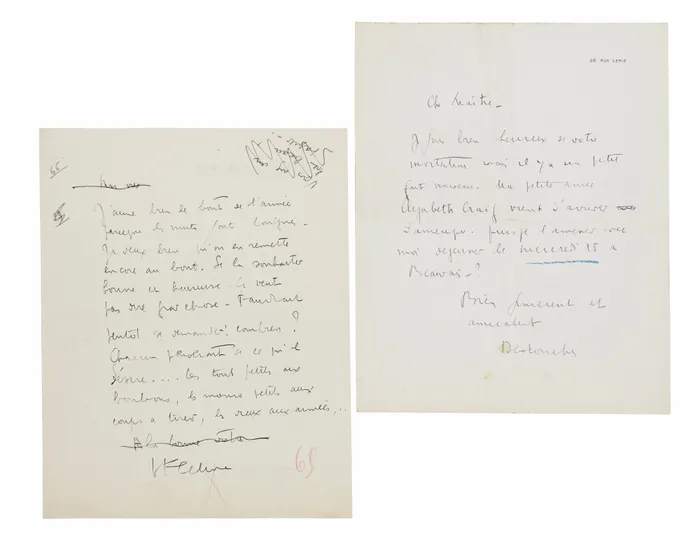 65
J'aime bien le bout de l'année
parceque les nuits sont longues -
Je veux bien qu'on en remette
encore au bout. Se la souhaiter
bonne et heureuse ça veut
pas dire grand chose - Faudrait
plutôt se demander : combien ?
Chacun penchant à ce qu'il
désire.... les tout petits aux
bonbons, les moins petits aux
coups à tirer, les vieux aux années,..
A la bonne
LFCeline
65
98 RUE LEPIC
Ch Maître -
Je suis bien heureux de votre
invitation mais il y a un petit
fait nouveau. Ma petite amie
Elizabeth Craig vient d'arriver
d'amérique. puis je l'amener avec
moi dejeuner le mercredi 15 à
Beauvais - ?
Bien sincerement et
amicalement
Destouches